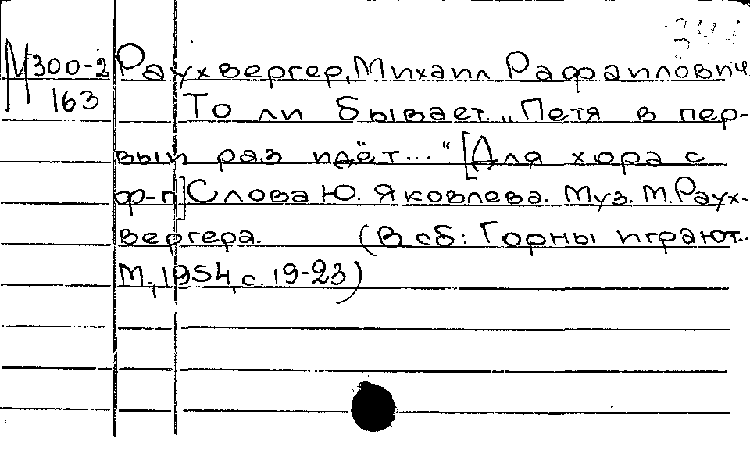 М300-2 Раухвергер, Михаил Рафаилович
163 То ли бывает. „Петя в пер-
вый раз идёт..." [Для хора с
ф-п] Слова Ю. Яковлева. Муз. М. Раух-
вергера. (В сб: Горны играют..
М., 1954, с 19-23)